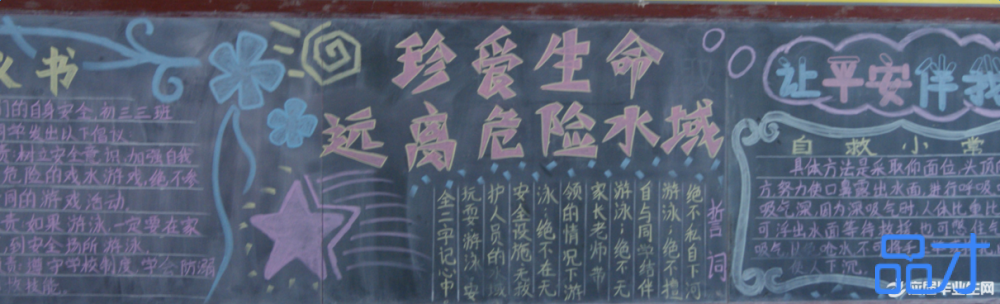 书
们的自身安全,初三三班
同学发出以下倡议
责:树立安全意识,加强自我
危险的戏水游戏,绝不参
的游戏活动.
责:如果游泳,一定要在家
到安全场所游泳
责:遵守学校制度,学会防溺
技能.
珍爱生命
远离危险水域
誓词
绝不私自下河
游泳;绝不擅
自与同学结伴
游泳;绝不无
家长老师带
领的情况下游
泳;绝不在无
安全设施,无救
护人员的水域
玩耍、游泳,安
全二字记心中
让平安伴我
自救小常
具体方法是采取仰面位,头顶
方,努力使口鼻露出水面,进行呼吸
吸气深,因为深吸气时,人体比重
可浮出水面等待
吸气 呛水 不可将手
人下沉.
品才
应届毕业生网